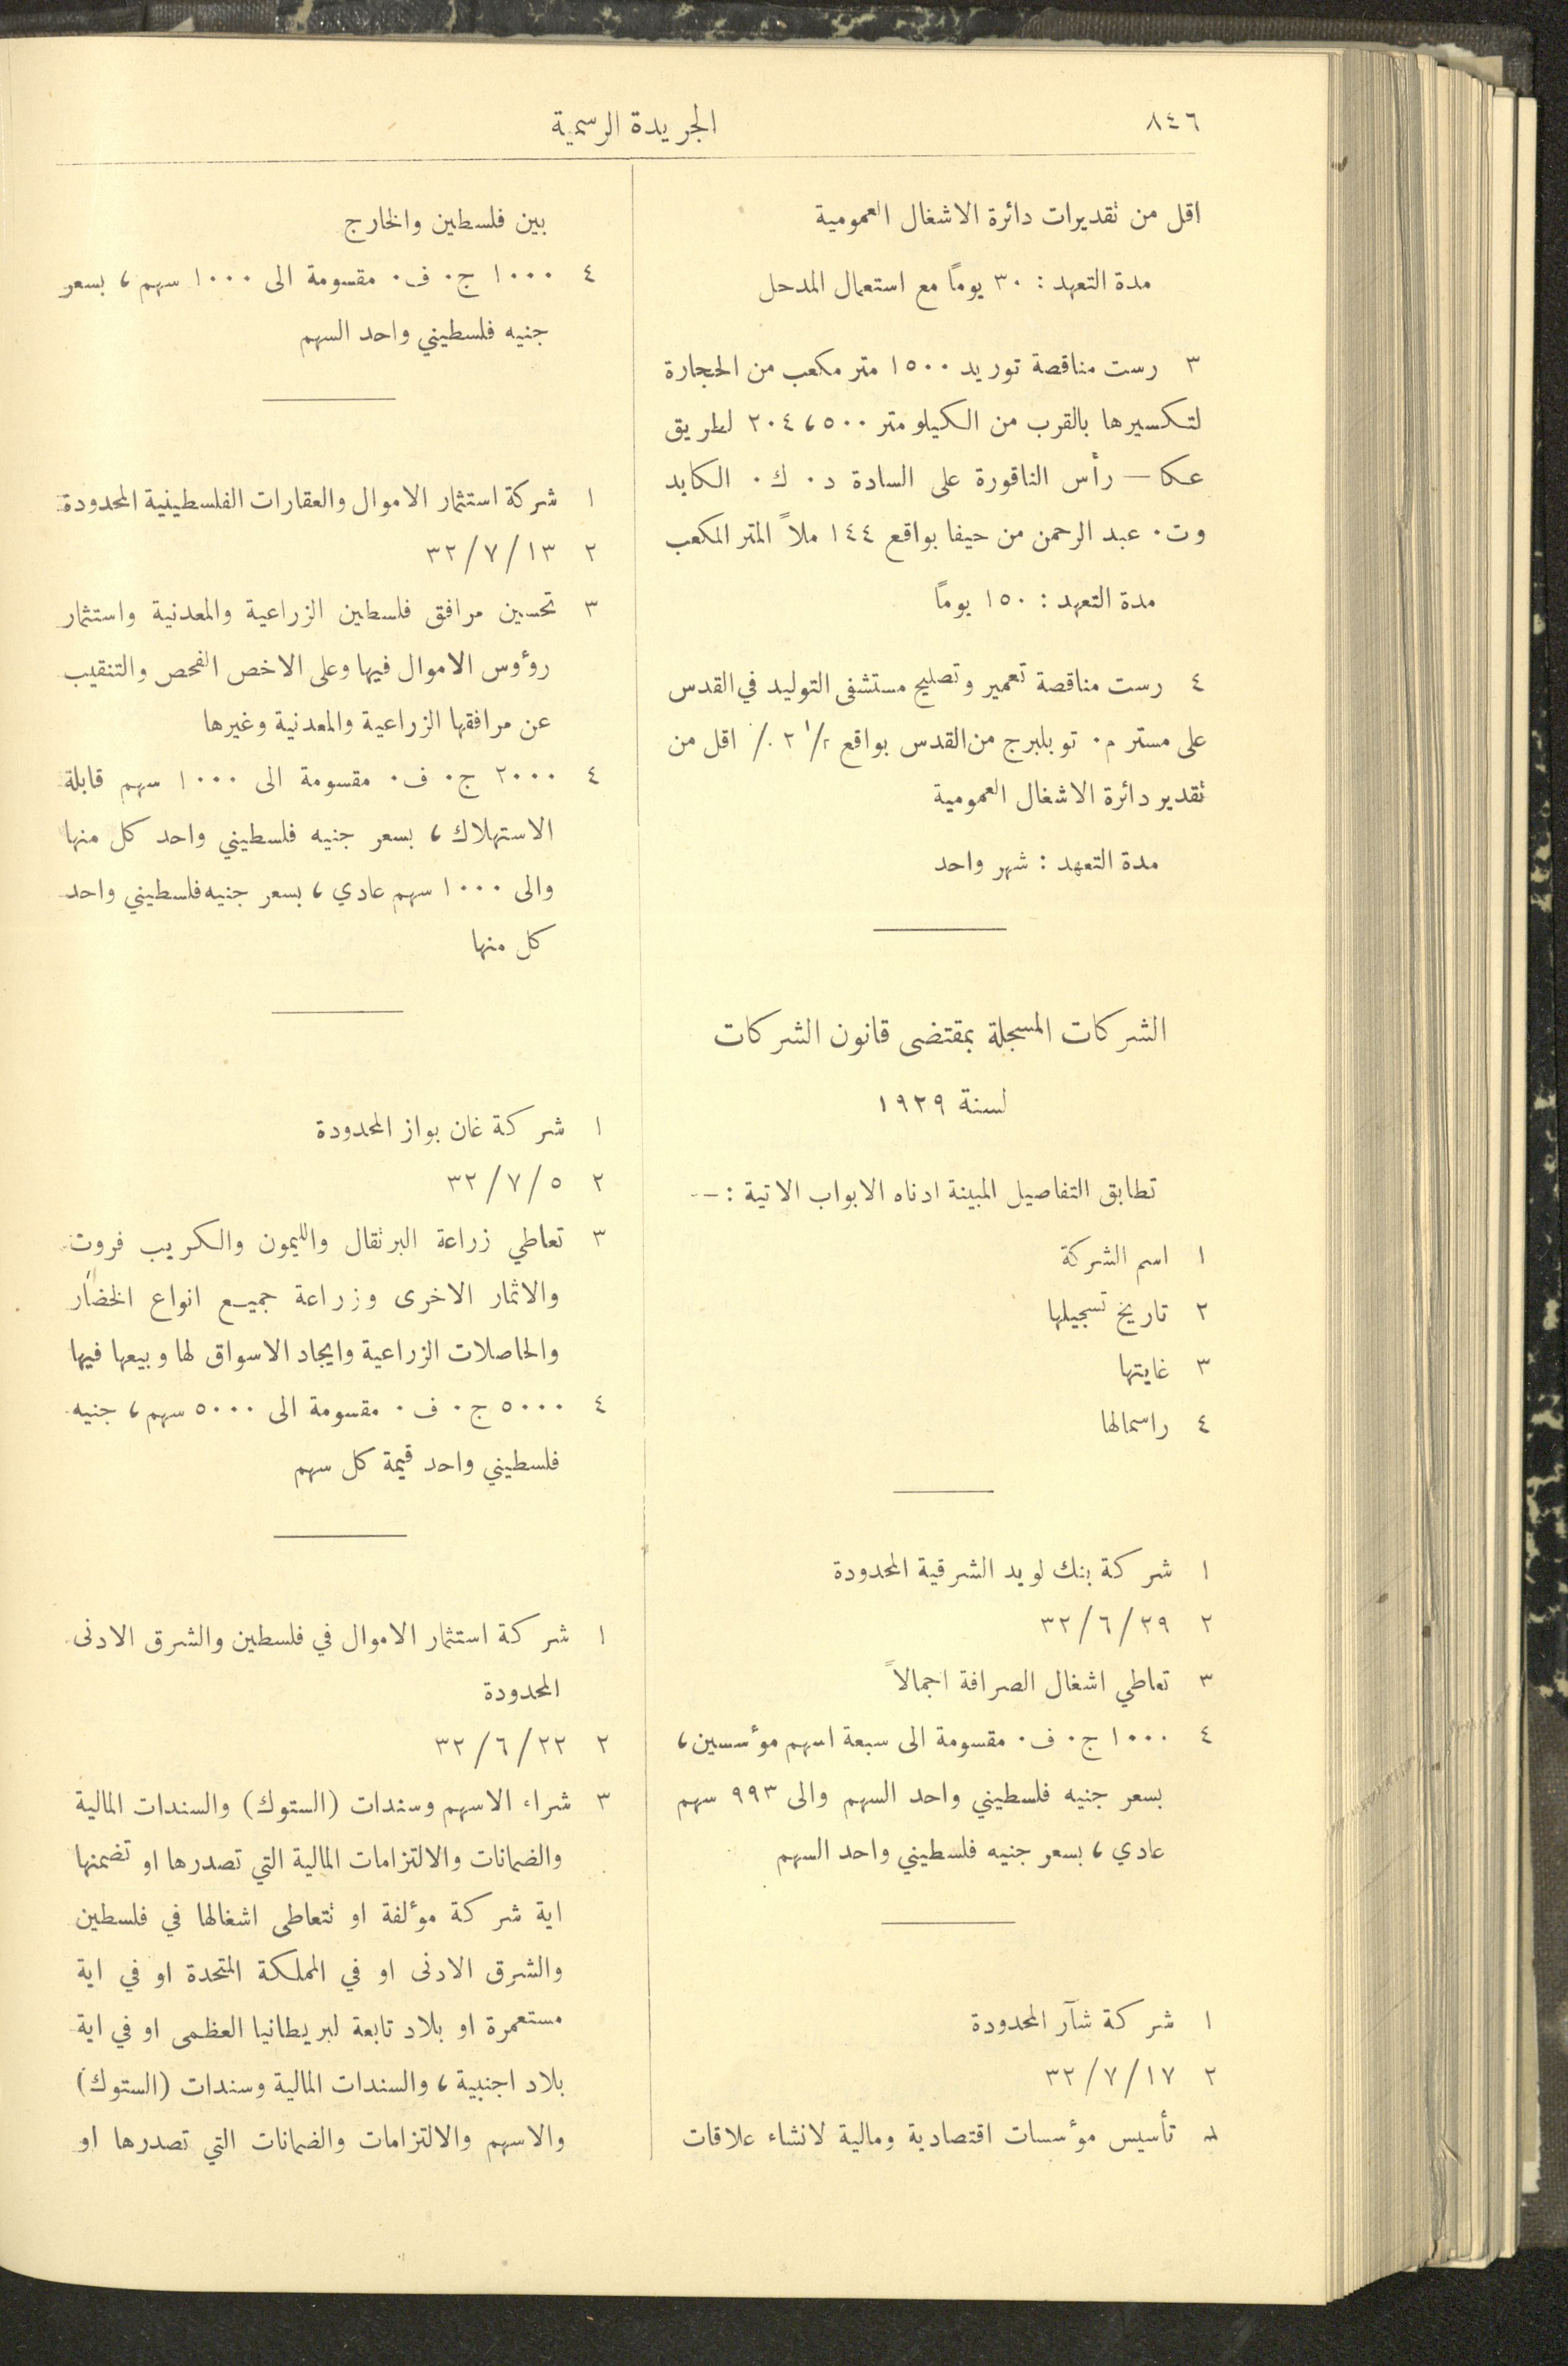 ٨٤٦
الجريدة الرسمية
اقل من تقديرات دائرة الاشغال العمومية
مدة التعهد : ٣٠ يوماً مع استعمال المدحل
٣ رست مناقصة توريد ١٥٠٠ متر مكعب من الحجارة
لتكسيرها بالقرب من الكيلو متر ٢٠٤،٥٠٠ لطريق
عكا — رأس الناقورة على السادة د. ك. الكابد
وت. عبد الرحمن من حيفا بواقع ١٤٤ ملاً المتر المكعب
مدة التعهد : ١٥٠ يوماً
٤ رست مناقصة تعمير وتصليح مستشفى التوليد في القدس
على مستر م. توبلبرج من القدس بواقع ٢ ١/٢ ٪ اقل من
تقدير دائرة الاشغال العمومية
مدة التعهد : شهر واحد
الشركات المسجلة بمقتضى قانون الشركات
لسنة ١٩٢٩
تطابق التفاصيل المبينة ادناه الابواب الاتية :—
١ اسم الشركة
٢ تاريخ تسجيلها
٣ غايتها
٤ راسمالها
١ شركة بنك لويد الشرقية المحدودة
٢ ٢٩/٦/٣٢
٣ تعاطي اشغال الصرافة اجمالاً
٤ ١٠٠٠ ج. ف. مقسومة الى سبعة اسهم مؤسسين،
بسعر جنيه فلسطيني واحد السهم والى ٩٩٣ سهم
عادي، بسعر جنيه فلسطيني واحد السهم
١ شركة شآر المحدودة
٢ ١٧/٧/٣٢
٣ تأسيس مؤسسات اقتصادية ومالية لانشاء علاقات
بين فلسطين والخارج
٤ ١٠٠٠ ج. ف. مقسومة الى ١٠٠٠ سهم، بسعر
جنيه فلسطيني واحد السهم
١ شركة استثمار الاموال والعقارات الفلسطينية المحدودة
٢ ١٣/٧/٣٢
٣ تحسين مرافق فلسطين الزراعية والمعدنية واستثمار
رؤوس الاموال فيها وعلى الاخص الفحص والتنقيب
عن مرافقها الزراعية والمعدنية وغيرها
٤ ٢٠٠٠ ج. ف. مقسومة الى ١٠٠٠ سهم قابلة
الاستهلاك، بسعر جنيه فلسطيني واحد كل منها
والى ١٠٠٠ سهم عادي، بسعر جنيه فلسطيني واحد
كل منها
١ شركة غان بواز المحدودة
٢ ٥/٧/٣٢
٣ تعاطي زراعة البرتقال والليمون والكريب فروت
والاثمار الاخرى وزراعة جميع انواع الخضار
والحاصلات الزراعية وايجاد الاسواق لها وبيعها فيها
٤ ٥٠٠٠ ج. ف. مقسومة الى ٥٠٠٠ سهم، جنيه
فلسطيني واحد قيمة كل سهم
١ شركة استثمار الاموال في فلسطين والشرق الادنى
المحدودة
٢ ٢٢/٦/٣٢
٣ شراء الاسهم وسندات (الستوك) والسندات المالية
والضمانات والالتزامات المالية التي تصدرها او تضمنها
اية شركة مؤلفة او تتعاطى اشغالها في فلسطين
والشرق الادنى او في المملكة المتحدة او في اية
مستعمرة او بلاد تابعة لبريطانيا العظمى او في اية
بلاد اجنبية، والسندات المالية وسندات (الستوك)
والاسهم والالتزامات والضمانات التي تصدرها او